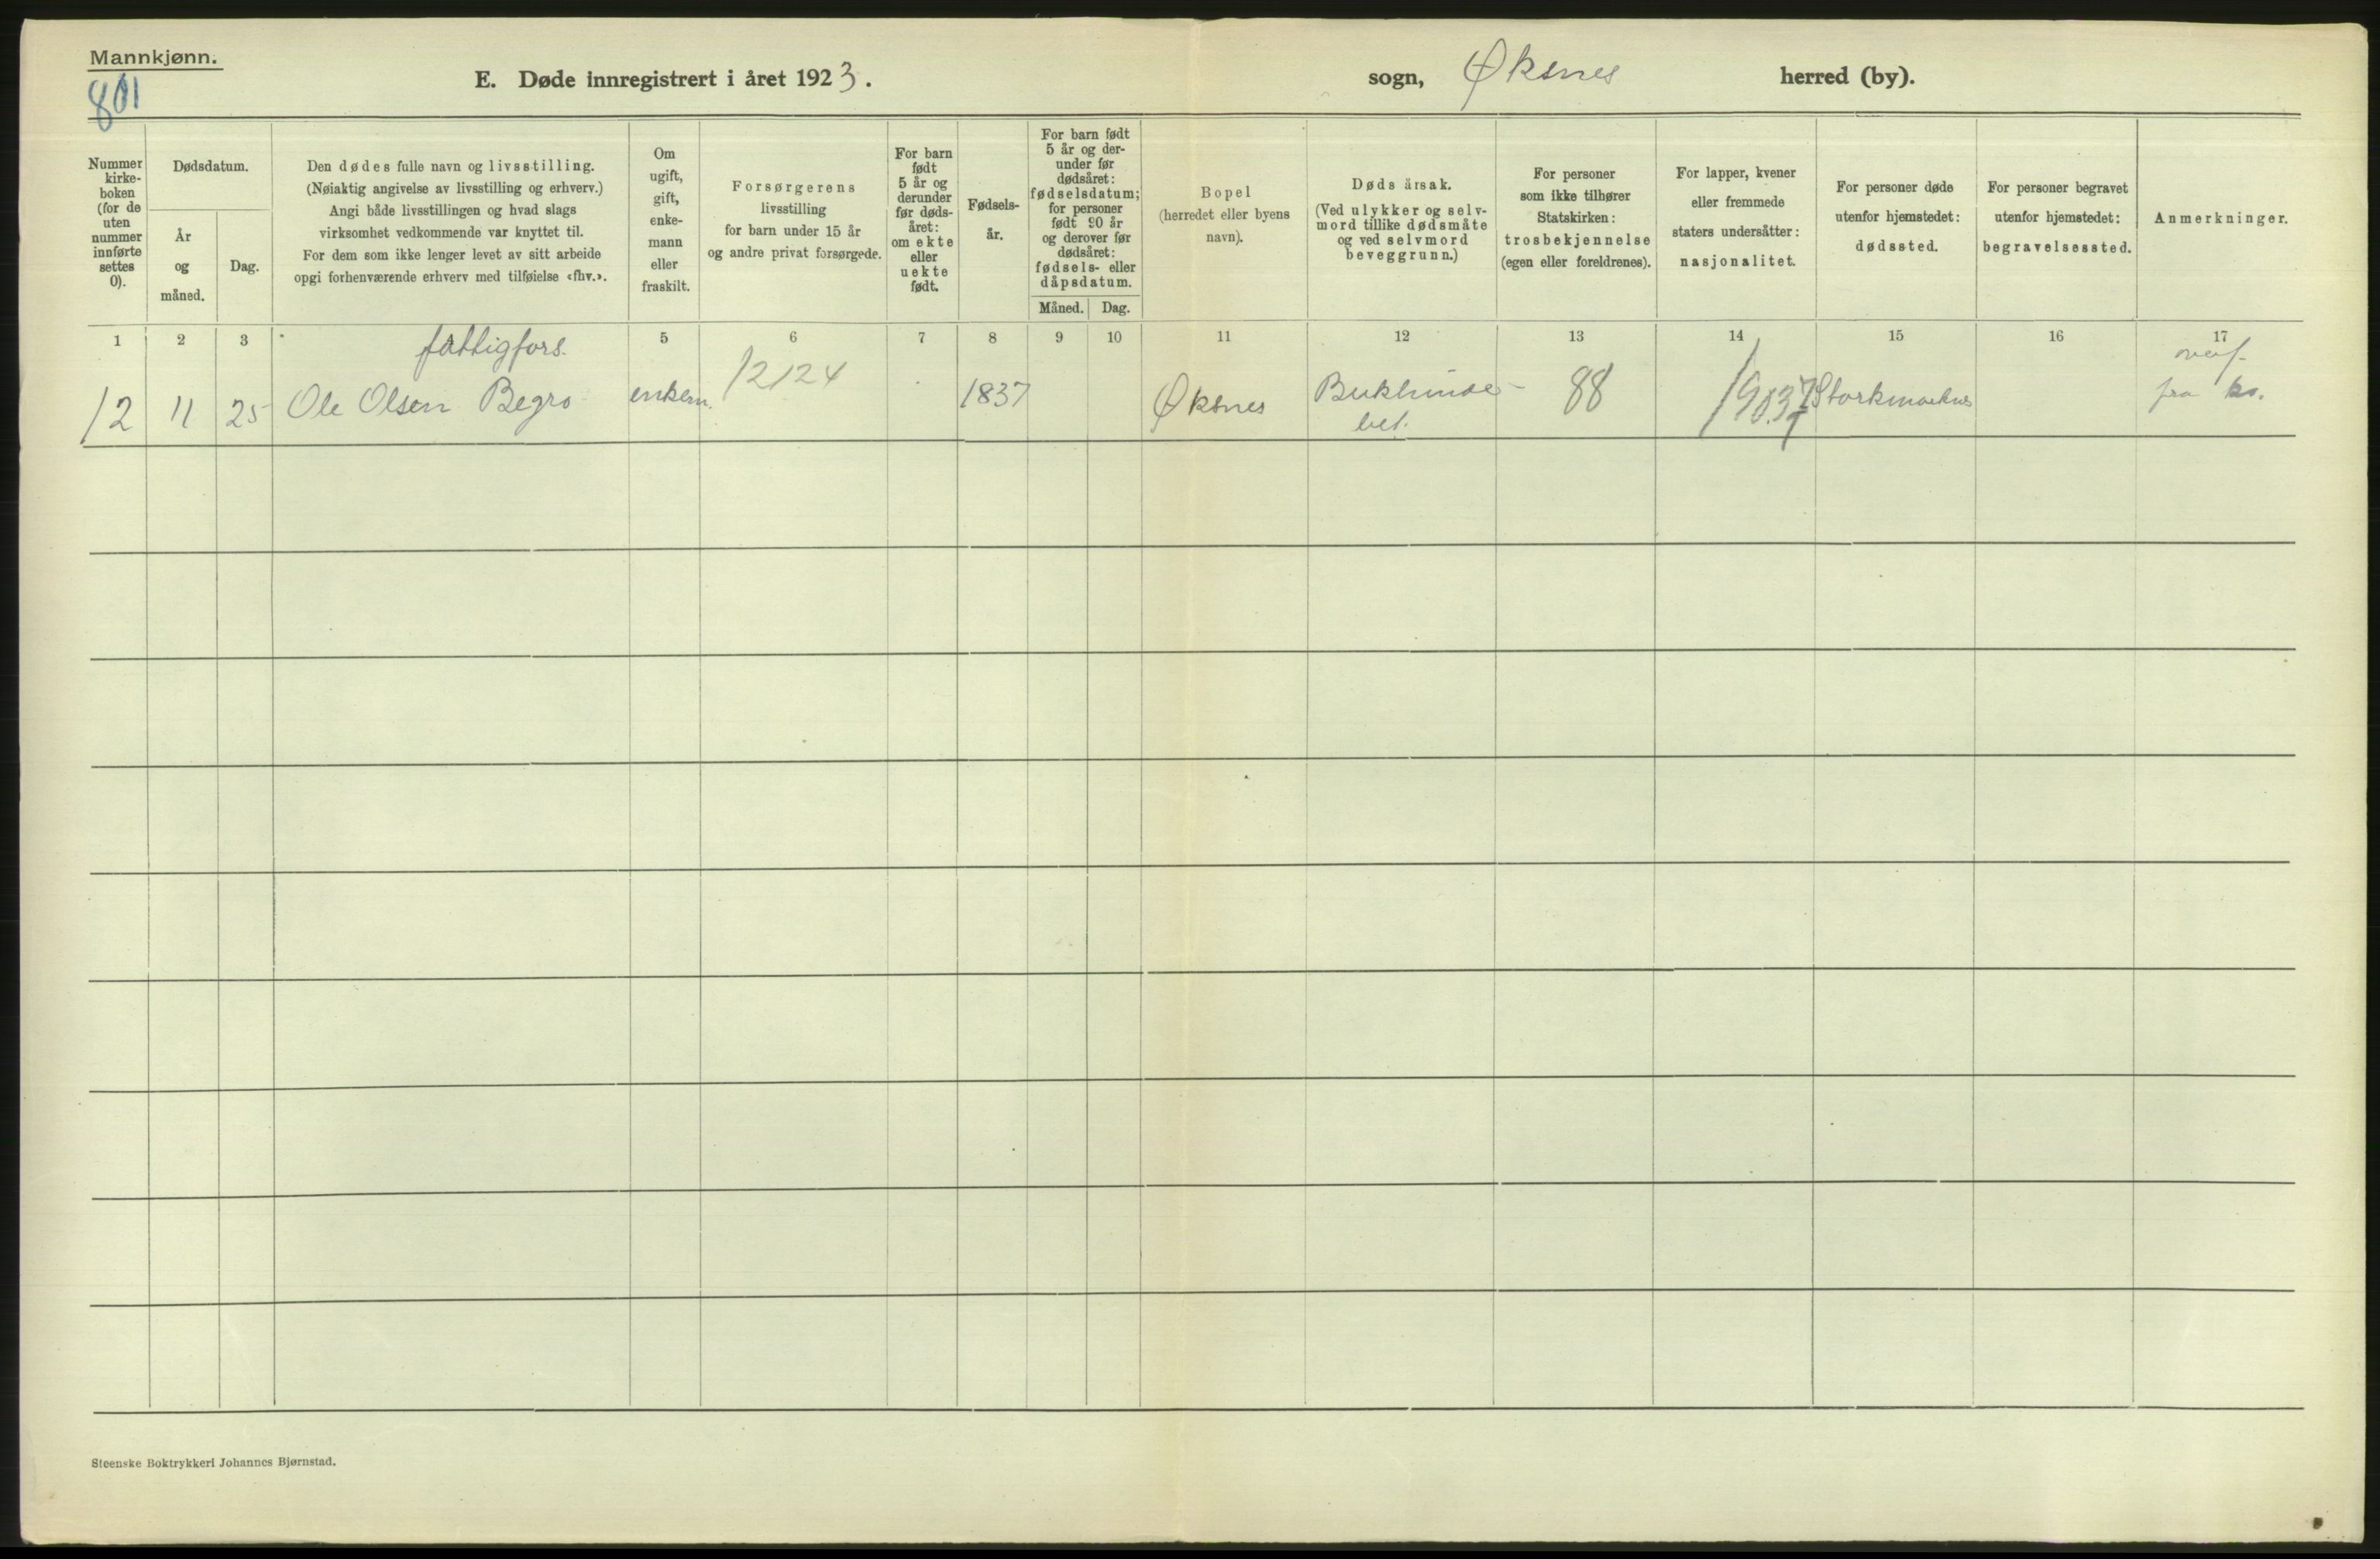 Mannkjønn.
801
E. Døde innregistrert i året 1923.
sogn, Øksnes herred (by).
Nummer
kirke-
boken
(for de
uten
nummer
innførte
settes
0).
Dødsdatum.
År
og
måned.
Dag.
Den dødes fulle navn og livsstilling.
(Nøiaktig angivelse av livsstilling og erhverv.)
Angi både livsstillingen og hvad slags
virksomhet vedkommende var knyttet til.
For dem som ikke lenger levet av sitt arbeide
opgi forhenværende erhverv med tilføielse «fhv.».
Om
ugift,
gift,
enke-
mann
eller
fraskilt.
Forsørgerens
livsstilling
for barn under 15 år
og andre privat forsørgede.
For barn
født
5 år og
derunder
før døds-
året:
om ekte
eller
uekte
født.
Fødsels-
år.
For barn født
5 år og der-
under før
dødsåret:
fødselsdatum;
for personer
født 90 år
og derover før
dødsåret:
fødsels- eller
dåpsdatum.
Måned. Dag.
Bopel
(herredet eller byens
navn).
Dødsårsak.
(Ved ulykker og selv-
mord tillike dødsmåte
og ved selvmord
beveggrunn.)
For personer
som ikke tilhører
Statskirken:
trosbekjennelse
(egen eller foreldrenes).
For lapper, kvener
eller fremmede
staters undersåtter:
nasjonalitet.
For personer døde
utenfor hjemstedet:
dødssted.
For personer begravet
utenfor hjemstedet:
begravelsessted.
Anmerkninger.
1 2 3 5 6 7 8 9 10 11 12 13 14 15 16 17
fattigfors.
12 11 25 Ole Olsen Begro enkem. 12124 1837 Øksnes Bukhinne- 88 Storkmarknes
bet.
overf.
fra ks.
Steenske Boktrykkeri Johannes Bjørnstad.